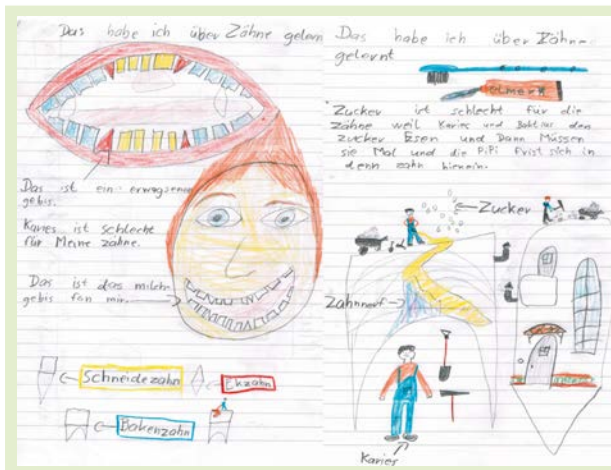 Das habe ich über Zähne gelernt
Das ist ein erwagsenes
gebis.
Karies ist schlecht
für Meine zähne.
Das ist das milch-
gebis fon mir.
Schneidezahn
Ekzahn
Bakenzahn
Das habe ich über Zähne-
gelernt
elmex
Zucker ist schlecht für die
zähne weil Karies und Baktius den
zucker Esen und Dann Müssen
sie Mal und die PiPi frist sich in
denn zahn hienein.
Zucker
Zahnnerf
Karies